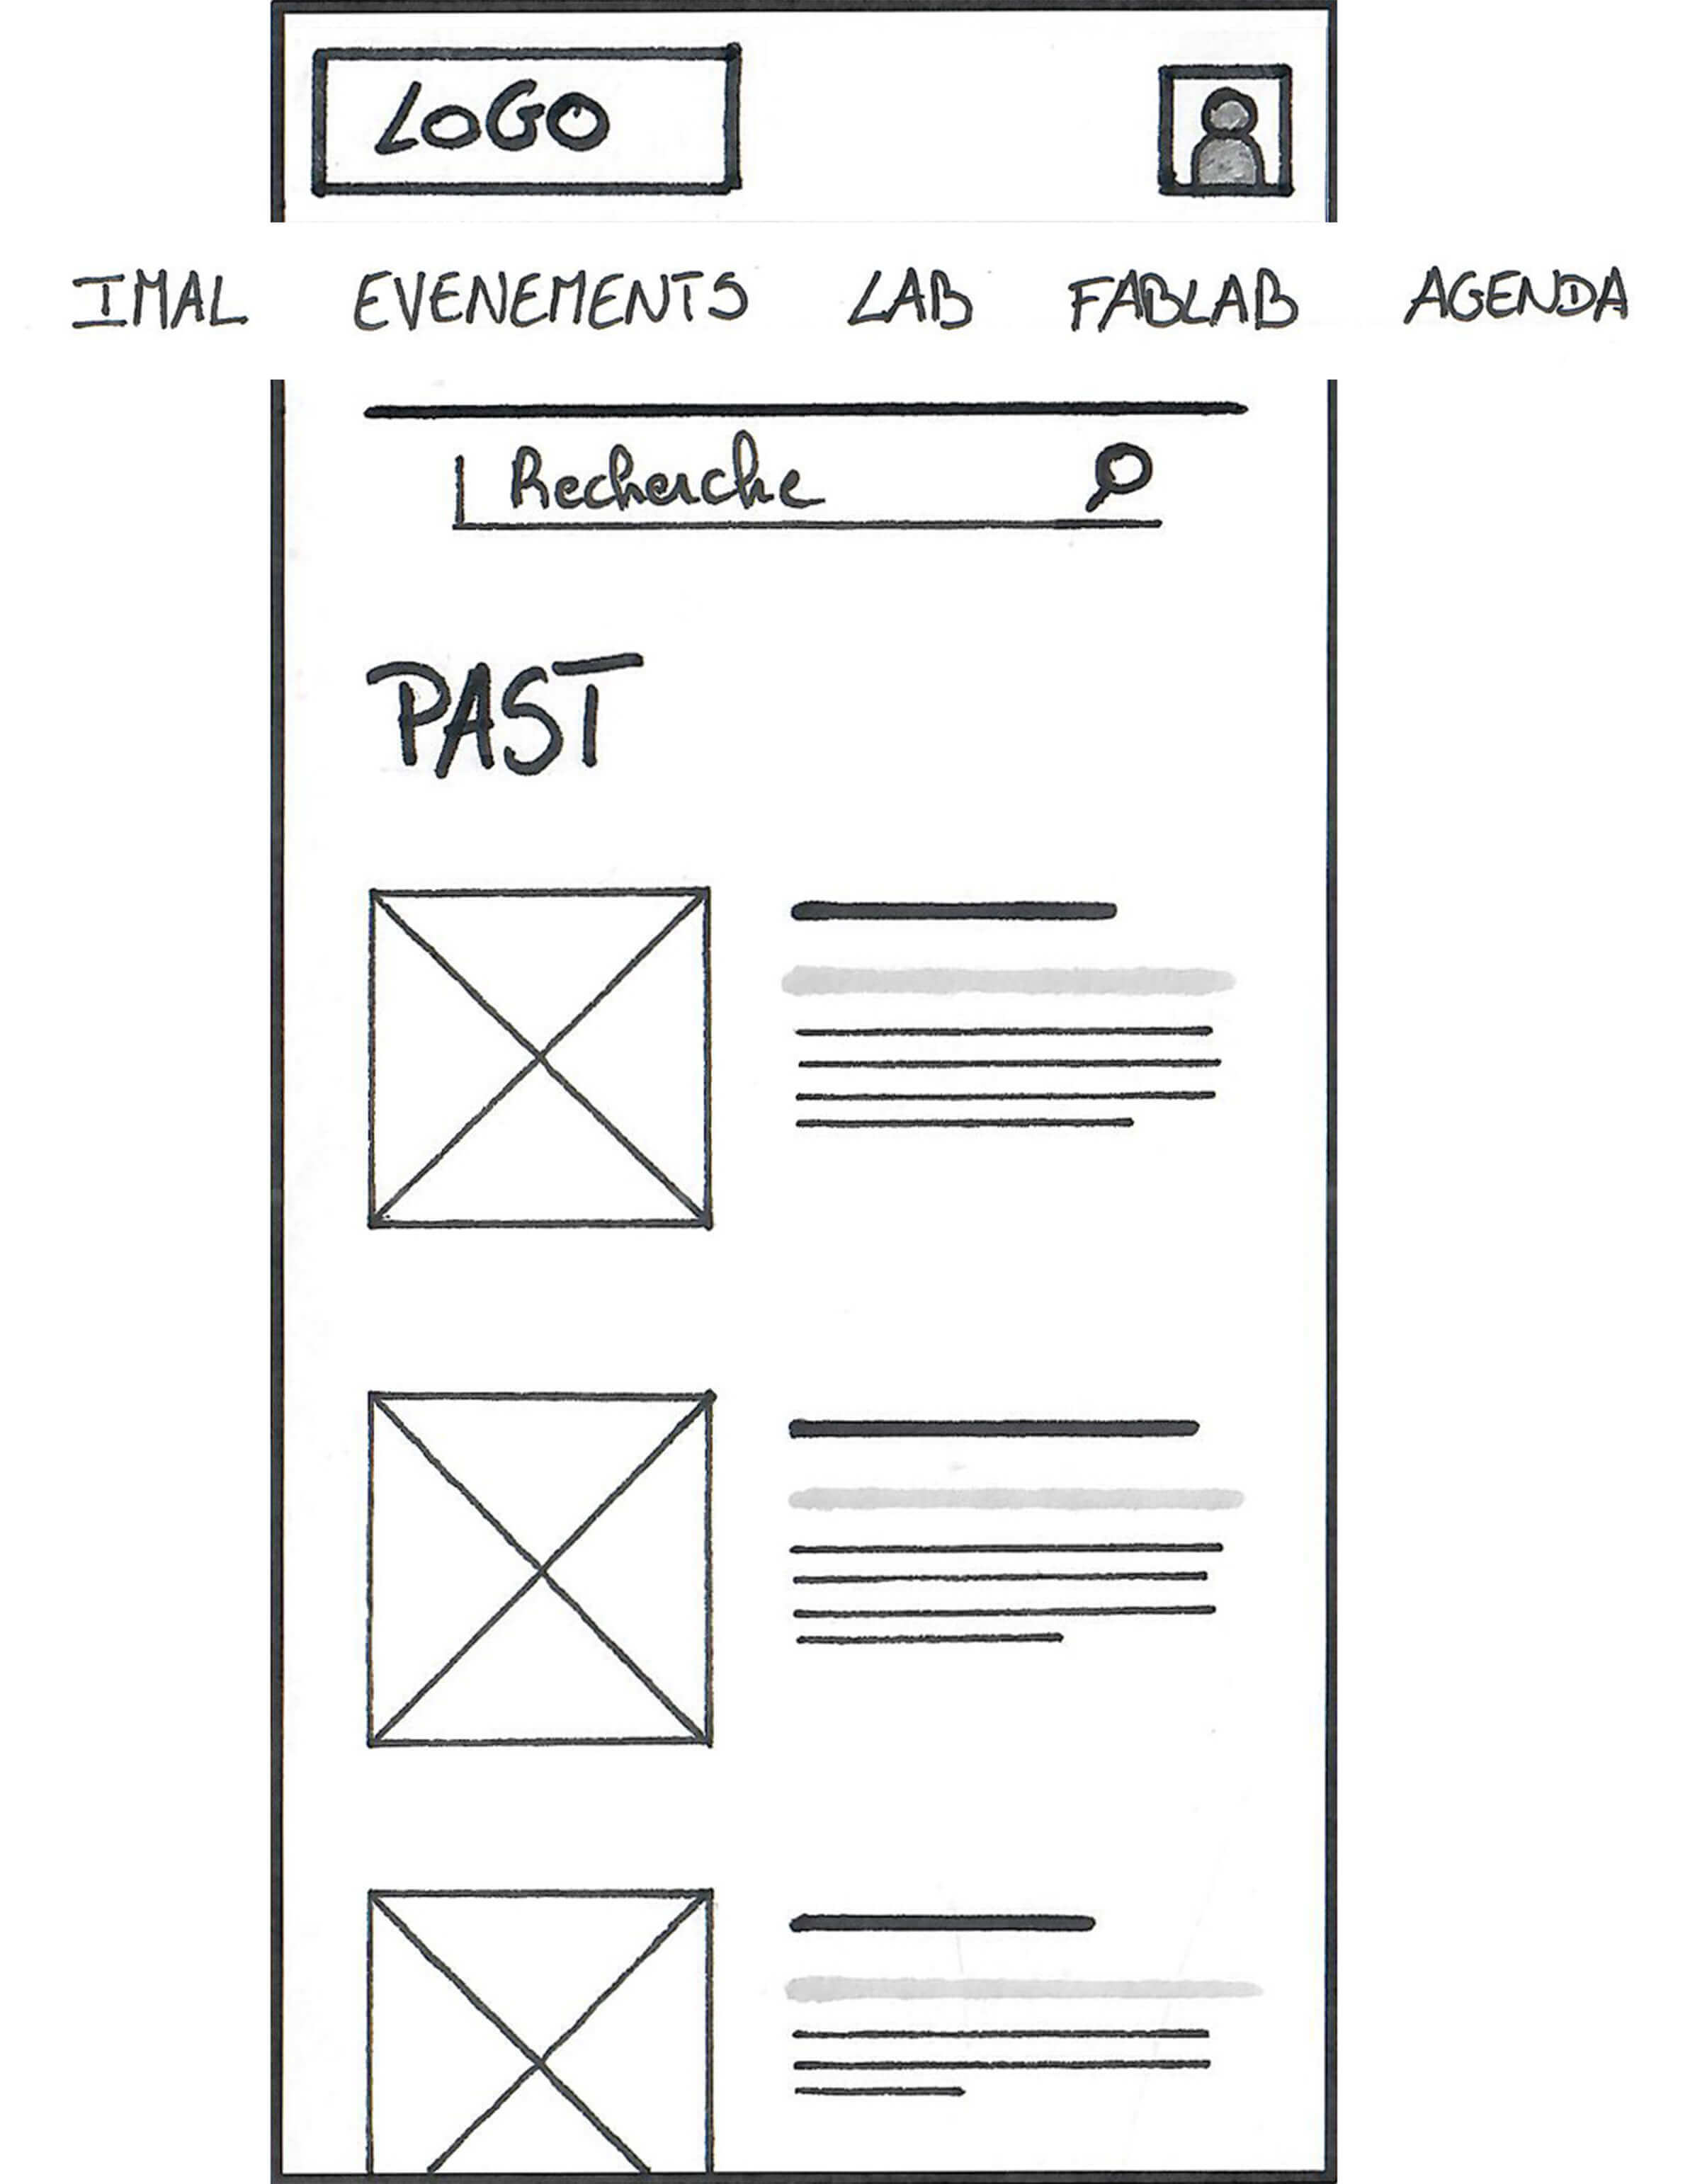 LOGO
IMAL EVENEMENTS LAB FABLAB AGENDA
Recherche
PAST